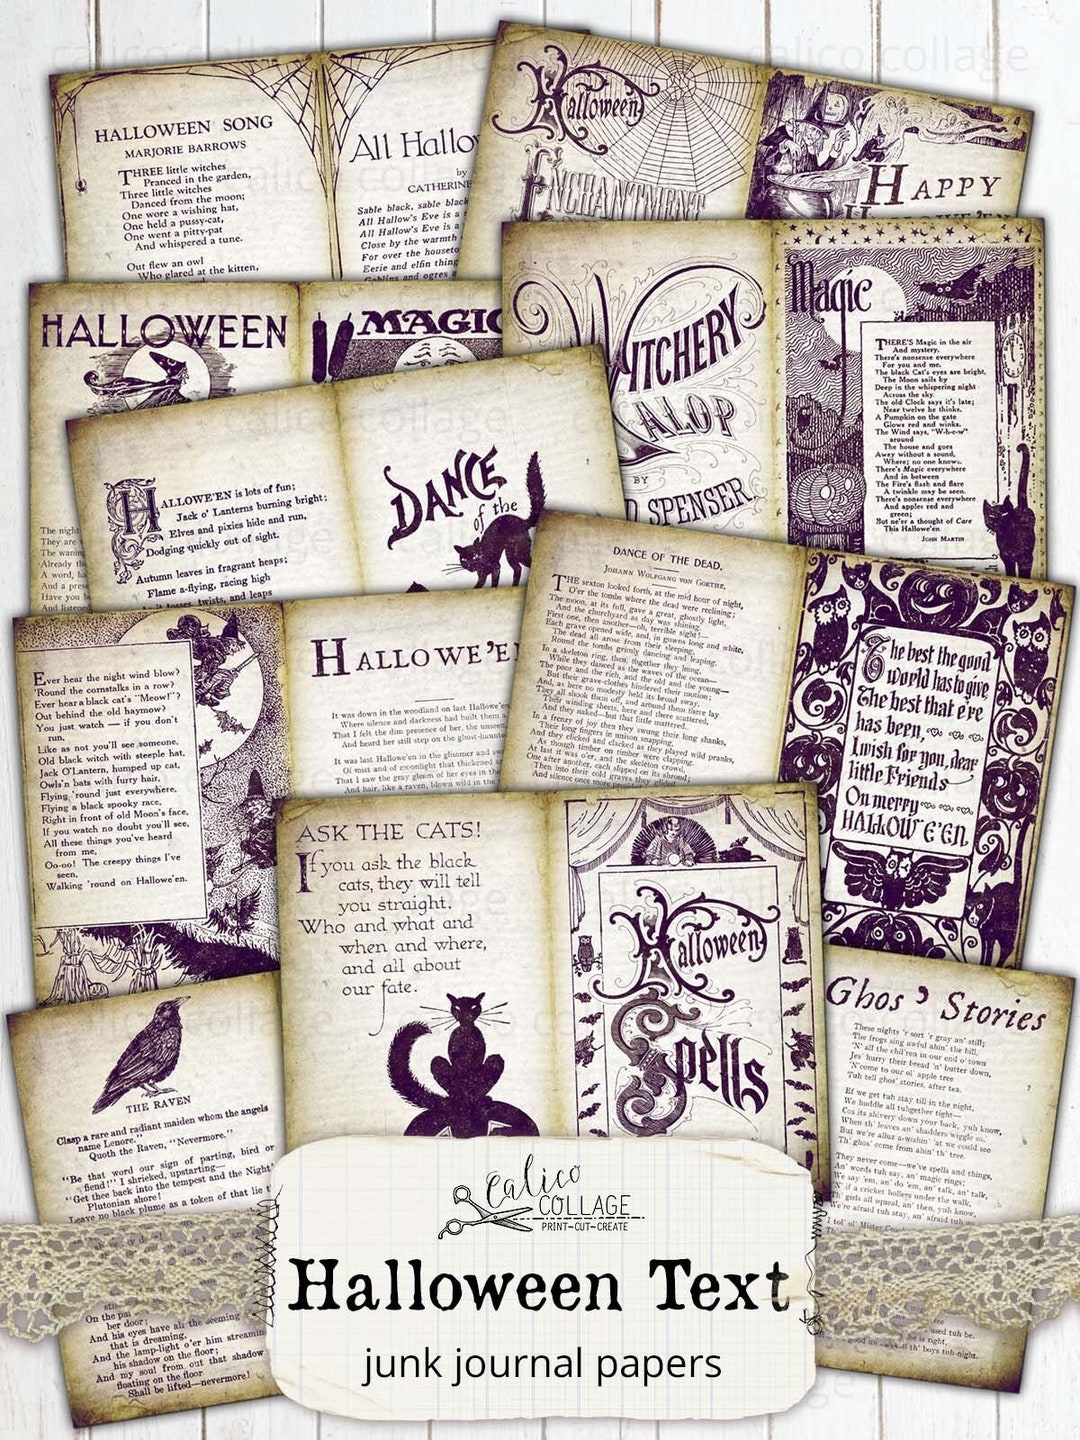 HALLOWEEN SONG
MARJORIE BARROWS
THREE little witches
Pranced in the garden,
Three little witches
Danced from the moon;
One wore a wishing hat,
One held a pussy-cat,
One went a pitty-pat
And whispered a tune.
Out flew an owl
Who glared at the kitten,
All Hallo
by
CATHERINE
Sable black, sable black
All Hallow's Eve is a
All Hallow's Eve is a
Close by the warmth
For over the houseto
Eerie and elfin thing
Goblins and ogres a
Halloween
ENCHANTMENT
HAPPY
HALLOWE'EN
HALLOWEEN
MAGIC
The night
They are
The waning
Already th
A word, ha
And a prese
Have you h
And listened
WITCHERY
GALOP
BY
D SPENSER
Magic
THERE'S Magic in the air
And mystery,
There's nonsense everywhere
For you and me.
The black Cat's eyes are bright,
The Moon sails by
Deep in the whispering night
Across the sky.
The old Clock says it's late;
Near twelve he thinks.
A Pumpkin on the gate
Glows red and winks.
The Wind says, "W-h-e-w"
around
The house and goes
Away without a sound,
Where; no one knows.
There's Magic everywhere
And in between
The Fire's flash and flare
A twinkle may be seen.
There's nonsense everywhere
And apples red and
green;
But ne'er a thought of Care
This Hallowe'en.
JOHN MARTIN
HALLOWE'EN is lots of fun;
Jack o' Lanterns burning bright;
Elves and pixies hide and run,
Dodging quickly out of sight.
Autumn leaves in fragrant heaps;
Flame a-flying, racing high
As it tosses, twists, and leaps
DANCE
of the
DANCE OF THE DEAD.
JOHANN WOLFGANG VON GOETHE.
THE sexton looked forth, at the mid hour of night,
O'er the tombs where the dead were reclining;
The moon, at its full, gave a great, ghostly light,
And the churchyard as day was shining.
First one, then another—oh, terrible sight!—
Each grave opened wide, and, in gowns long and white,
The dead all arose from their sleeping,
Round the tombs grimly dancing and leaping.
In a skeleton ring, then, together they hung,
While they danced as the waves of the ocean—
The poor and the rich, and the old and the young—
But their grave-clothes hindered their motion;
And, as here no modesty held its broad sway,
They all shook them off, and around them there lay
Their winding sheets, here and there scattered,
And they naked—but that little mattered.
In a frenzy of joy then they swung their long shanks,
Their long fingers in unison snapping,
And they clicked and clacked as they played wild pranks,
As though timber on timber were clapping.
At last it was o'er, and the skeleton crowd,
One after another, each slipped on its shroud;
Then into their cold graves they glided
The best the good
world has to give
The best that e're
has been,
I wish for you, dear
little Friends
On merry
HALLOW E'EN.
Ever hear the night wind blow?
'Round the cornstalks in a row?
Ever hear a black cat's "Meow!"?
Out behind the old haymow?
You just watch — if you don't
run,
Like as not you'll see someone,
Old black witch with steeple hat,
Jack O'Lantern, humped up cat,
Owls'n bats with furry hair,
Flying 'round just everywhere,
Flying a black spooky race,
Right in front of old Moon's face,
If you watch no doubt you'll see,
All these things you've heard
from me,
Oo-oo! The creepy things I've
seen,
Walking 'round on Hallowe'en.
HALLOWE'EN
It was down in the woodland on last Hallowe'en,
Where silence and darkness had built them a
That I felt the dim presence of her, the unseen
And heard her still step on the ghost-haunted
It was last Hallowe'en in the glimmer and sw
Of mist and of moonlight that thickened or
That I saw the gray gleam of her eyes in the
And hair, like a raven, blown wild in the
ASK THE CATS!
If you ask the black
cats, they will tell
you straight.
Who and what and
when and where,
and all about
our fate.
Halloween
Spells
THE RAVEN
Clasp a rare and radiant maiden whom the angels
name Lenore."
Quoth the Raven, "Nevermore."
"Be that word our sign of parting, bird or
fiend!" I shrieked, upstarting—
"Get thee back into the tempest and the Night's
Plutonian shore!
Leave no black plume as a token of that lie
On the pal
ber door;
And his eyes have all the seeming
that is dreaming,
And the lamp-light o'er him streaming
his shadow on the floor;
And my soul from out that shadow
floating on the floor
Shall be lifted—nevermore!
Ghos' Stories
These nights 'r sort 'r gray an' still;
The frogs sing awful ahin' the hill,
'N' all the chil'ren in our end o' town
Jes' hurry their bread 'n' butter down,
'N'come to our ol' apple tree
Tuh tell ghos' stories, after tea.
Ef we get tuh stay till in the night,
We huddle all tuhgether tight—
Cos its shivery down your back, yuh know,
When th' leaves an' shadders wiggle so.
But we're alluz a-wishin' 'at we could see
Th' ghos' come from ahin' th' tree.
They never come—we've spells and things,
An' words tuh say, an' magic rings;
We say 'em, an' do 'em, an' talk, an' talk,
'N' if a cricket hollers under the walk,
Th' girls all squeal, an' then, yuh know,
We're afraid tuh stay, an' afraid tuh
used tuh be.
is right,
th' boys tuh-night.
calico
COLLAGE
PRINT-CUT-CREATE
Halloween Text
junk journal papers
calico collage